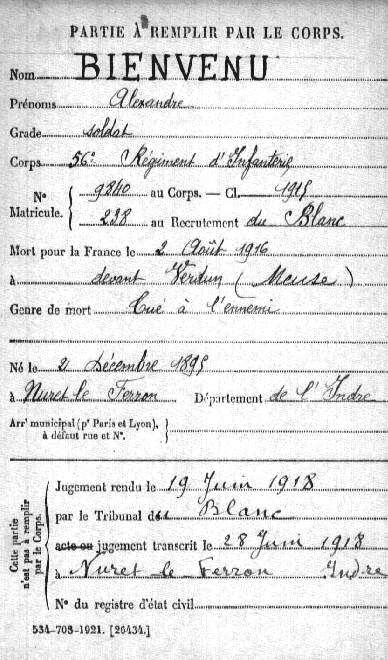 PARTIE À REMPLIR PAR LE CORPS.
Nom BIENVENU
Prénoms Alexandre
Grade soldat
Corps 56e Régiment d'Infanterie
No Matricule. 9240 au Corps. — Cl. 1915
238 au Recrutement du Blanc
Mort pour la France le 2 Août 1916
à devant Verdun (Meuse)
Genre de mort Tué à l'ennemi
Né le 2 Décembre 1895
à Nuret le Ferron Département de l'Indre
Arrt municipal (pr Paris et Lyon), à défaut rue et No.
Cette partie n'est pas à remplir par le Corps.
Jugement rendu le 19 Juin 1918
par le Tribunal du Blanc
acte ou jugement transcrit le 28 Juin 1918
à Nuret le Ferron Indre
No du registre d'état civil
534-708-1921. [26434.]